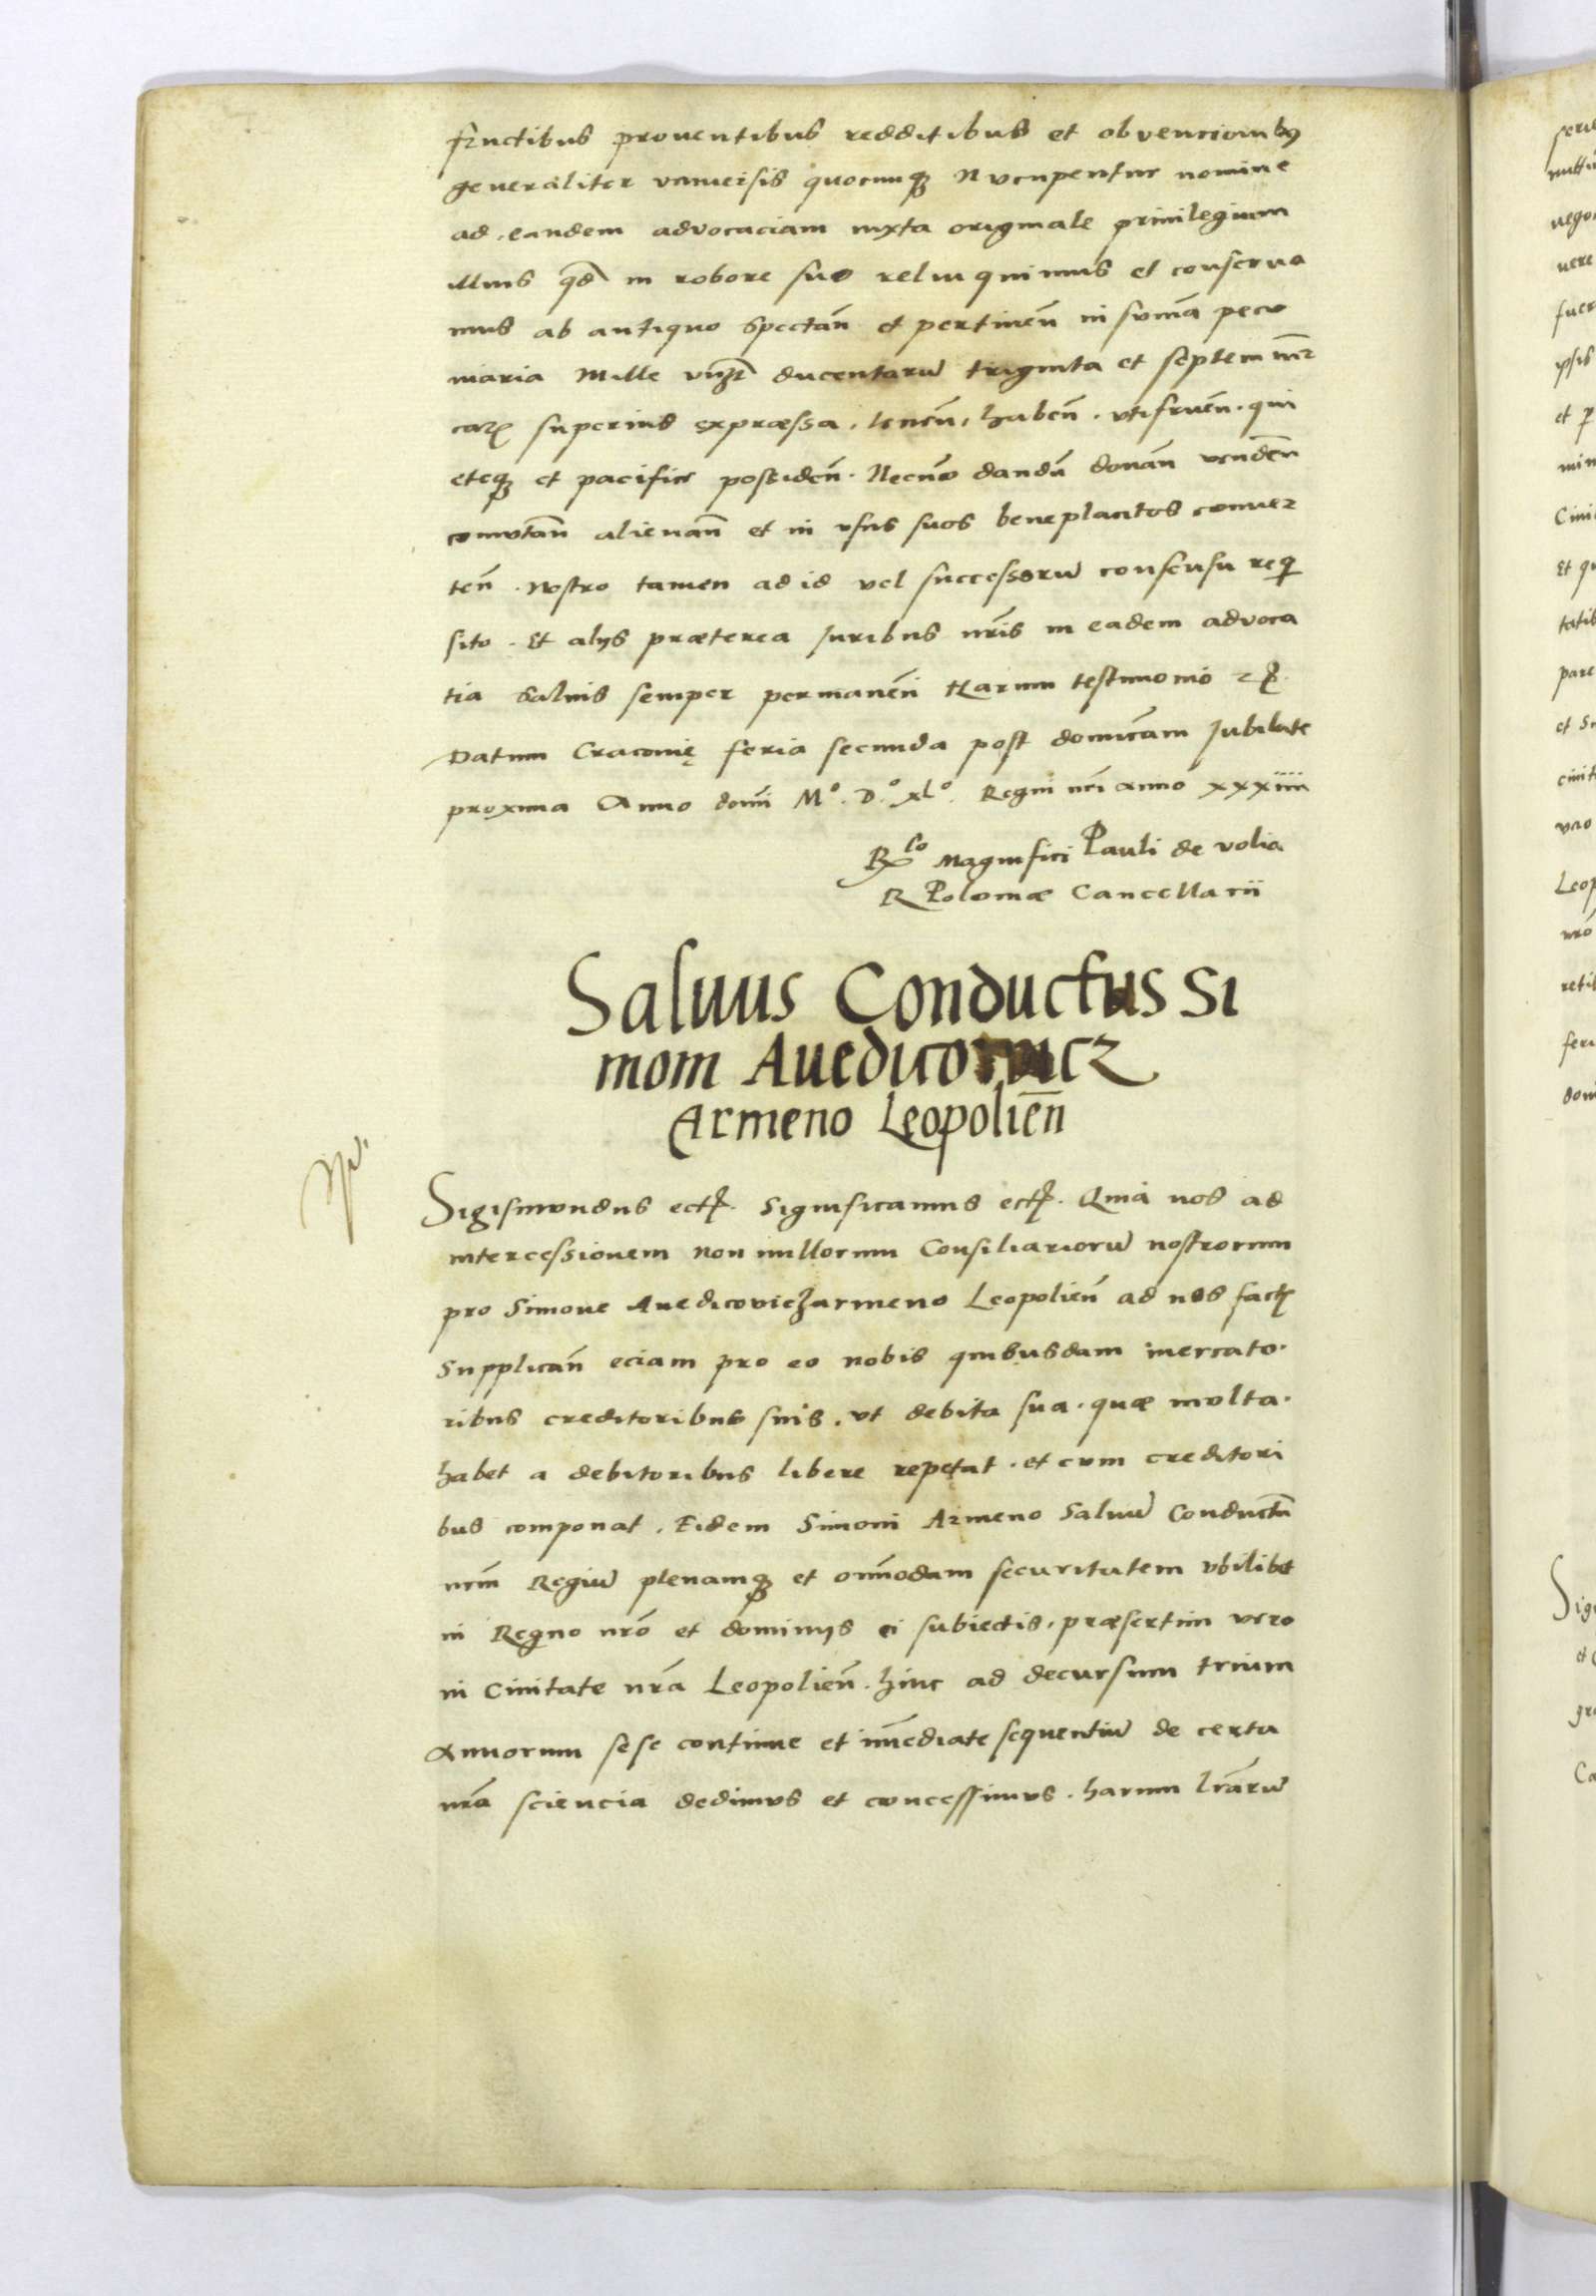 fructibus prouentibus redditibus et obvencionibꝰ
generaliter vniuersis quocunqꝫ nvcupentur nomine
ad eandem advocaciam iuxta originale priuilegium
illius qd̄ in robore suo relinquimus et conserua
mus ab antiquo spectan̄ et pertinen̄ in sum̄a pecu
niaria Mille vigz̄t ducentarū triginta et septem mr̄
carꝝ superius expræssa. tenen̄. haben̄. vtifruen̄. qui
eteqꝫ et pacifice possiden̄. Necnō dandn̄ donan̄ venden̄
comvtan̄ alienan̄ et in vsus suos beneplacitos conuer
ten̄. Nostro tamen ad id vel successorū consensu requi
sito. Et alijs præterea Juribus nr̄is in eadem advoca
tia saluis semper permanen̄ Harum testimonio ⁊ꝯ.
Datum Cracouię feria secunda post domic̄am Jubilate
proxima Anno domī Mº. D.º xlº. Regni nr̄i anno xxxiiii
Rlo Magnifici Pauli de volia
R Poloniæ Cancellarii
Saluus Conductus Si
moni Auedicowicz
Armeno Leopolien̄
Sigismundus ectꝭ. Significamus ectꝭ. Quia nos ad
intercessionem non nullorum Consiliariorū nostrorum
pro Simone Auedicovicz armeno Leopolien̄ ad nos factꝭ
Supplican̄ eciam pro eo nobis quibusdam mercato
ribus creditoribus suis. vt debita sua. quæ molta.
habet a debitoribus libere repetat. et cum creditori
bus componat. Eidem Simoni Armeno Saluū Conductū
nr̄m Regiū plenamqꝫ et om̄imodam securitatem vbilibet
in Regno nr̄o et dominijs ei subiectis. præsertim vero
in Ciuitate nr̄a Leopolien̄. hinc ad decursum trium
Annorum sese continue et im̄ediate sequentiū de certa
nr̄a sciencia dedimus et concessimus. harum lr̄arū